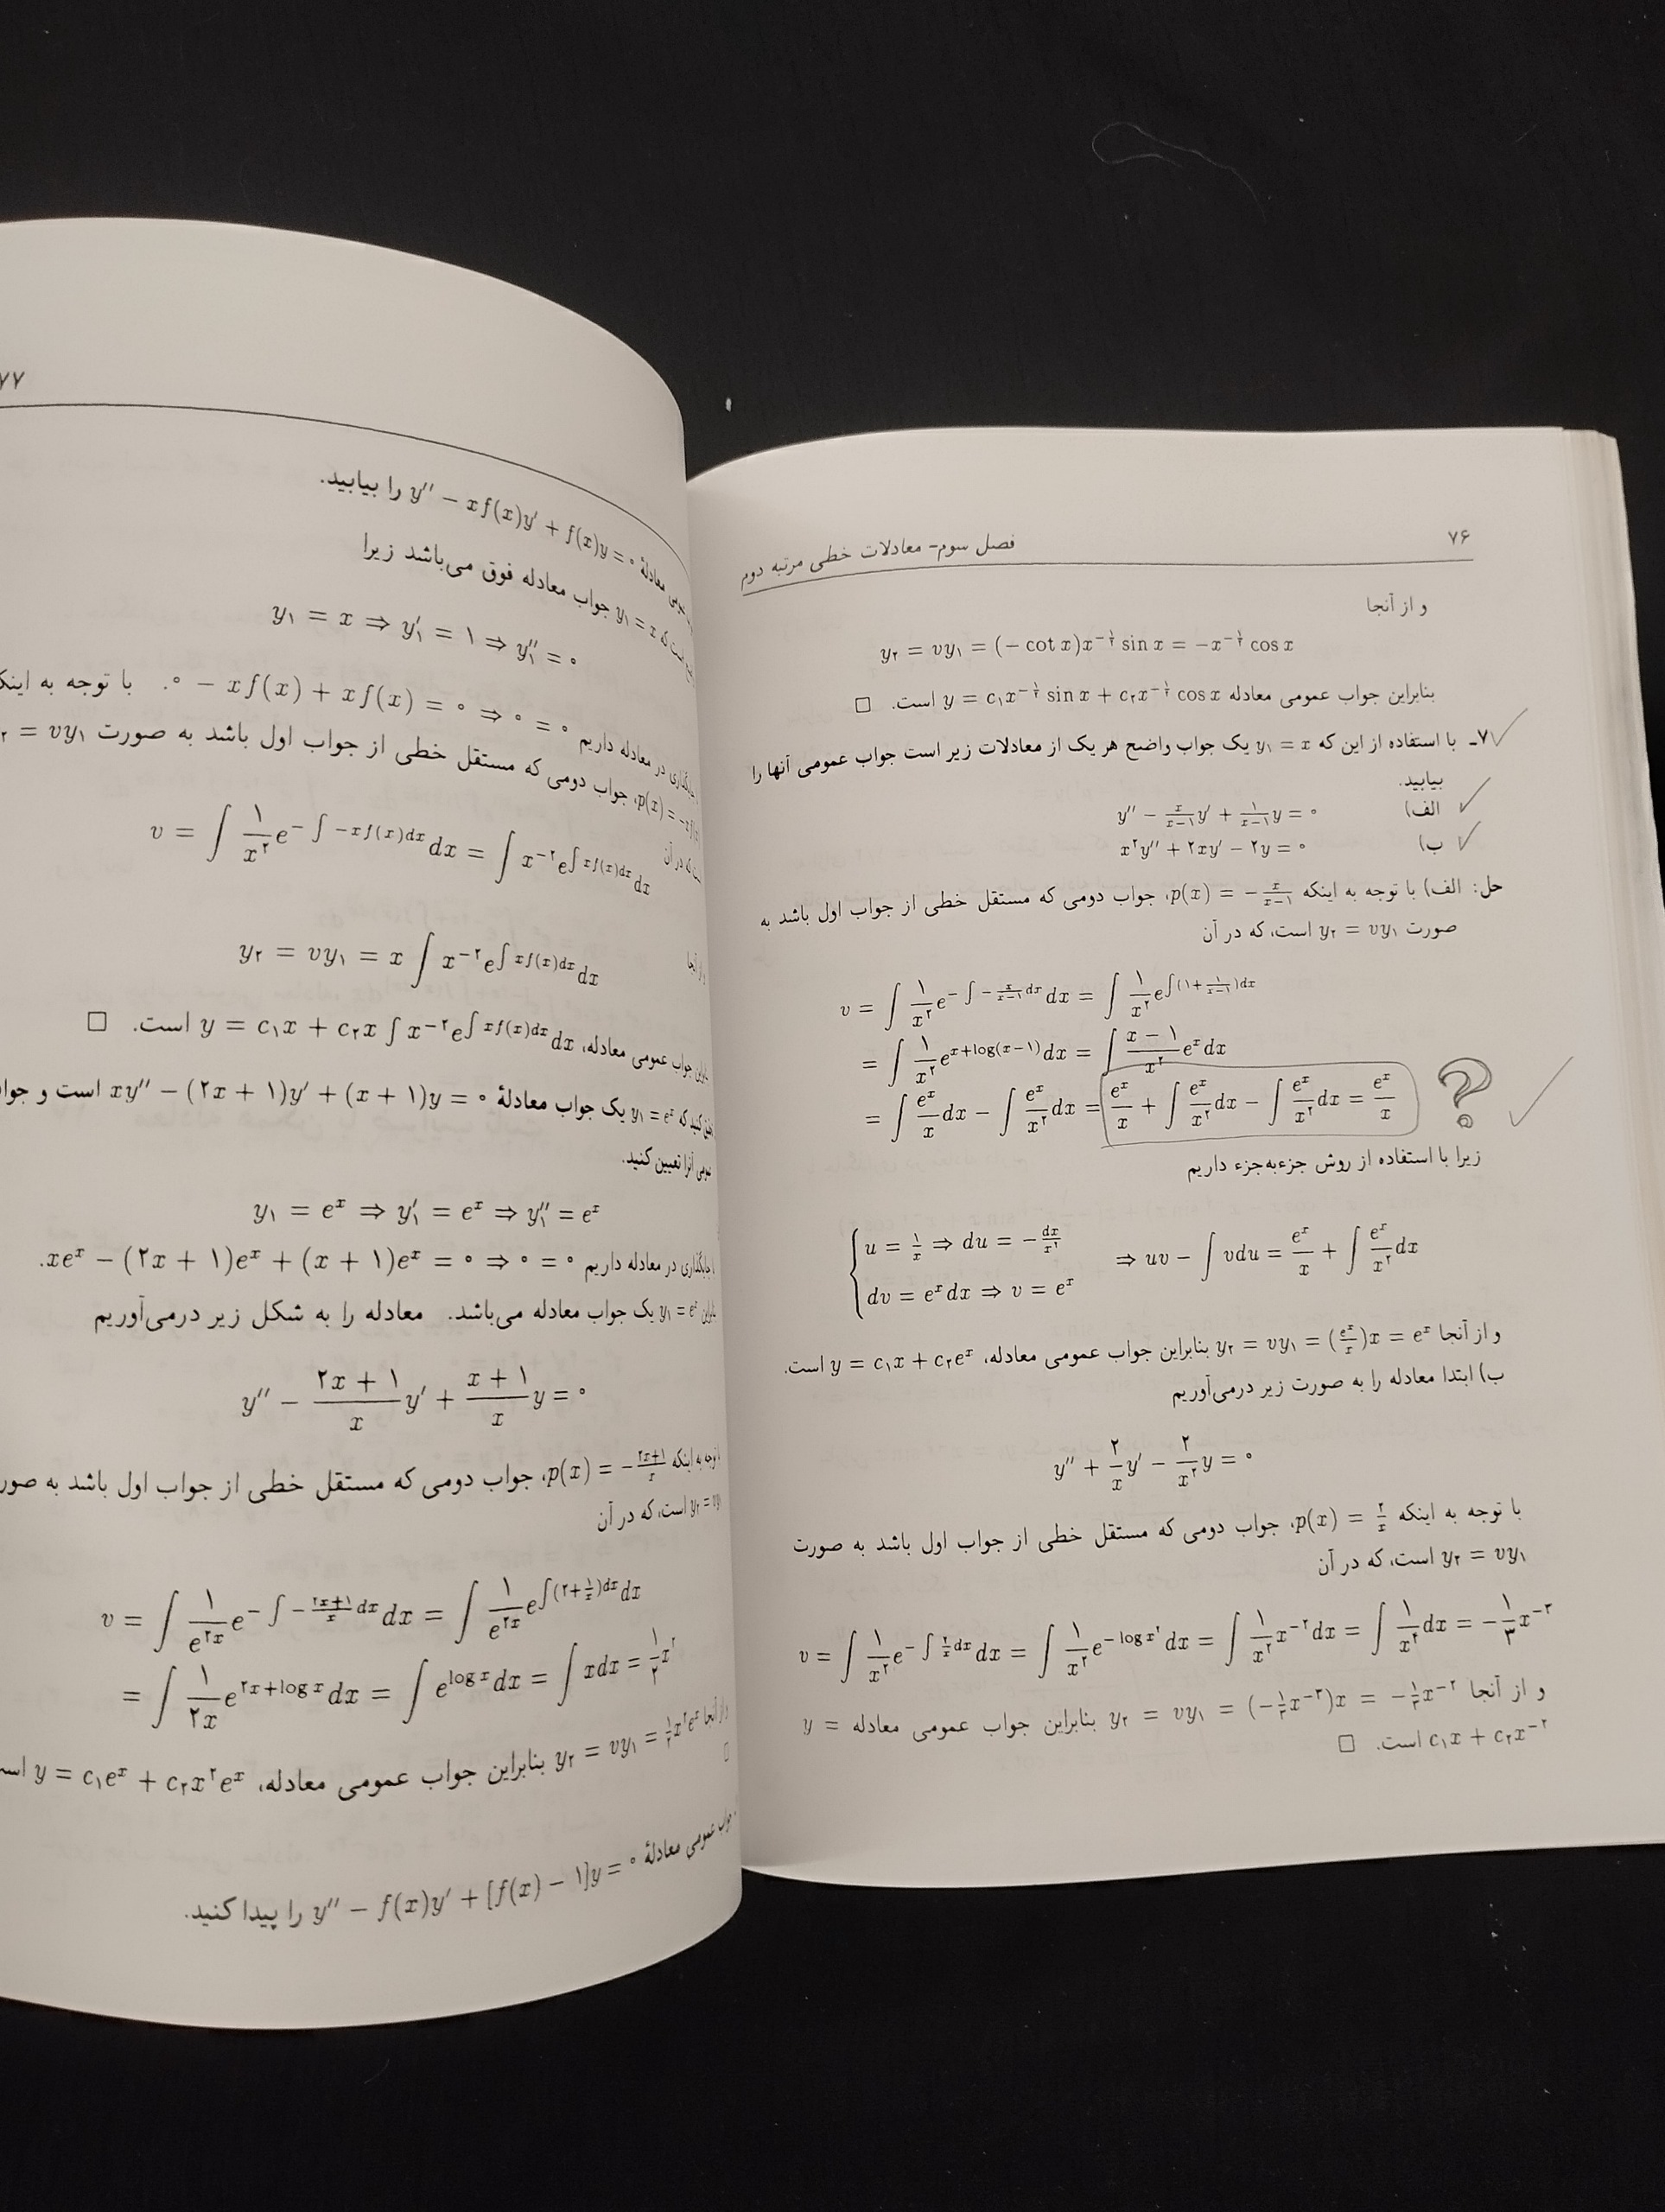 ۷۶
فصل سوم- معادلات خطی مرتبه دوم
و از آنجا
y₂ = vy₁ = (− cot x)x^{−۱/۲} sin x = −x^{−۱/۲} cos x
بنابراین جواب عمومی معادله y = c₁x^{−۱/۲} sin x + c₂x^{−۱/۲} cos x است. □
۷ـ با استفاده از این که y₁ = x یک جواب واضح هر یک از معادلات زیر است جواب عمومی آنها را
بیابید.
الف) y′′ − \frac{x}{x−۱}y′ + \frac{۱}{x−۱}y = ۰
ب) x²y′′ + ۲xy′ − ۲y = ۰
حل: الف) با توجه به اینکه p(x) = −\frac{x}{x−۱}، جواب دومی که مستقل خطی از جواب اول باشد به
صورت y₂ = vy₁ است، که در آن
v = ∫ \frac{۱}{x²}e^{−∫ −\frac{x}{x−۱}dx}dx = ∫ \frac{۱}{x²}e^{∫(۱+\frac{۱}{x−۱})dx}
= ∫ \frac{۱}{x²}e^{x+log(x−۱)}dx = ∫ \frac{x − ۱}{x²}e^x dx
= ∫ \frac{e^x}{x}dx − ∫ \frac{e^x}{x²}dx = \frac{e^x}{x} + ∫ \frac{e^x}{x²}dx − ∫ \frac{e^x}{x²}dx = \frac{e^x}{x} ?
زیرا با استفاده از روش جزءبه‌جزء داریم
u = \frac{۱}{x} ⇒ du = −\frac{dx}{x²}
dv = e^x dx ⇒ v = e^x
⇒ uv − ∫ vdu = \frac{e^x}{x} + ∫ \frac{e^x}{x²}dx
و از آنجا y₂ = vy₁ = (\frac{e^x}{x})x = e^x بنابراین جواب عمومی معادله، y = c₁x + c₂e^x است.
ب) ابتدا معادله را به صورت زیر درمی‌آوریم
y′′ + \frac{۲}{x}y′ − \frac{۲}{x²}y = ۰
با توجه به اینکه p(x) = \frac{۲}{x}، جواب دومی که مستقل خطی از جواب اول باشد به صورت
y₂ = vy₁ است، که در آن
v = ∫ \frac{۱}{x²}e^{−∫ \frac{۲}{x}dx}dx = ∫ \frac{۱}{x²}e^{−log x²}dx = ∫ \frac{۱}{x²}x^{−۲}dx = ∫ \frac{۱}{x⁴}dx = −\frac{۱}{۳}x^{−۳}
و از آنجا y₂ = vy₁ = (−\frac{۱}{۳}x^{−۳})x = −\frac{۱}{۳}x^{−۲} بنابراین جواب عمومی معادله y =
c₁x + c₂x^{−۲} است. □
۷۷
معادلهٔ y′′ − xf(x)y′ + f(x)y = ۰ را بیابید.
است که y₁ = x جواب معادله فوق می‌باشد زیرا
y₁ = x ⇒ y′₁ = ۱ ⇒ y′′₁ = ۰
در معادله داریم ۰ − xf(x) + xf(x) = ۰ ⇒ ۰ = ۰. با توجه به
p(x) = −xf(x)، جواب دومی که مستقل خطی از جواب اول باشد به صورت = vy₁
که در آن
v = ∫ \frac{۱}{x²}e^{−∫ −xf(x)dx}dx = ∫ x^{−۲}e^{∫ xf(x)dx}dx
y₂ = vy₁ = x ∫ x^{−۲}e^{∫ xf(x)dx}dx
جواب عمومی معادله، y = c₁x + c₂x ∫ x^{−۲}e^{∫ xf(x)dx}dx است. □
کنید که y₁ = e^x یک جواب معادلهٔ xy′′ − (۲x + ۱)y′ + (x + ۱)y = ۰ است و
آنرا تعیین کنید.
y₁ = e^x ⇒ y′₁ = e^x ⇒ y′′₁ = e^x
در معادله داریم xe^x − (۲x + ۱)e^x + (x + ۱)e^x = ۰ ⇒ ۰ = ۰.
y₁ = e^x یک جواب معادله می‌باشد. معادله را به شکل زیر درمی‌آوریم
y′′ − \frac{۲x + ۱}{x}y′ + \frac{x + ۱}{x}y = ۰
توجه به اینکه p(x) = −\frac{۲x+۱}{x}، جواب دومی که مستقل خطی از جواب اول باشد به
است، که در آن
v = ∫ \frac{۱}{e^{۲x}}e^{−∫ −\frac{۲x+۱}{x}dx}dx = ∫ \frac{۱}{e^{۲x}}e^{∫(۲+\frac{۱}{x})dx}dx
= ∫ \frac{۱}{۲x}e^{۲x+log x}dx = ∫ e^{log x}dx = ∫ xdx = \frac{۱}{۲}x²
از آنجا y₂ = vy₁ = \frac{۱}{۲}x²e^x بنابراین جواب عمومی معادله، y = c₁e^x + c₂x²e^x
□
جواب عمومی معادلهٔ y′′ − f(x)y′ + [f(x) − ۱]y = ۰ را پیدا کنید.